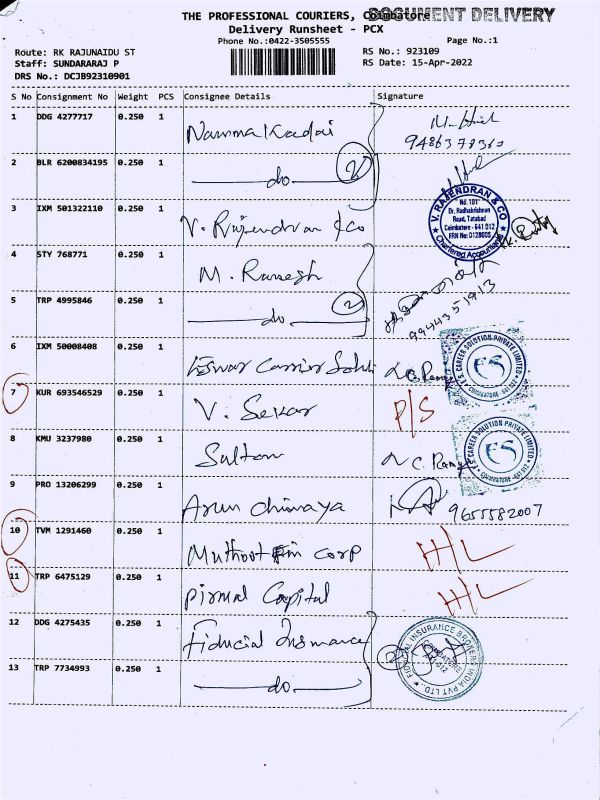 THE PROFESSIONAL COURIERS, Coimbatore
DOCUMENT DELIVERY
Delivery Runsheet - PCX
Phone No.:0422-3505555
Page No.:1
Route: RK RAJUNAIDU ST
RS No.: 923109
Staff: SUNDARARAJ P
RS Date: 15-Apr-2022
DRS No.: DCJB92310901
S No Consignment No Weight PCS Consignee Details Signature
1 DDG 4277717 0.250 1 Namma Kadai
2 BLR 6200834195 0.250 1 do 2
3 IXM 501322110 0.250 1 V. Rajendran & Co
V. RAJENDRAN & CO
No. 101
Dr. Radhakrishnan
Road, Tatabad
Coimbatore - 641 012
FRN No: 012860S
Chartered Accountants
4 STY 768771 0.250 1 M. Ramesh
5 TRP 4995846 0.250 1 do 2 9944351913
6 IXM 50008408 0.250 1
CAREER SOLUTION PRIVATE LIMITED
ES
7 KUR 693546529 0.250 1 V. Sekar P/S
8 KMU 3237980 0.250 1 Sultan
CAREER SOLUTION PRIVATE LIMITED
ES
COIMBATORE - 641 012
9 PRO 13206299 0.250 1 Arun Chinnaya 9655582007
10 TVM 1291460 0.250 1 Muthoot Fin Corp H/L
11 TRP 6475129 0.250 1 Pirmal Capital H/L
12 DDG 4275435 0.250 1 Fiducial Insurance
INSURANCE BROKERS INDIA PVT LTD
13 TRP 7734993 0.250 1 do 2